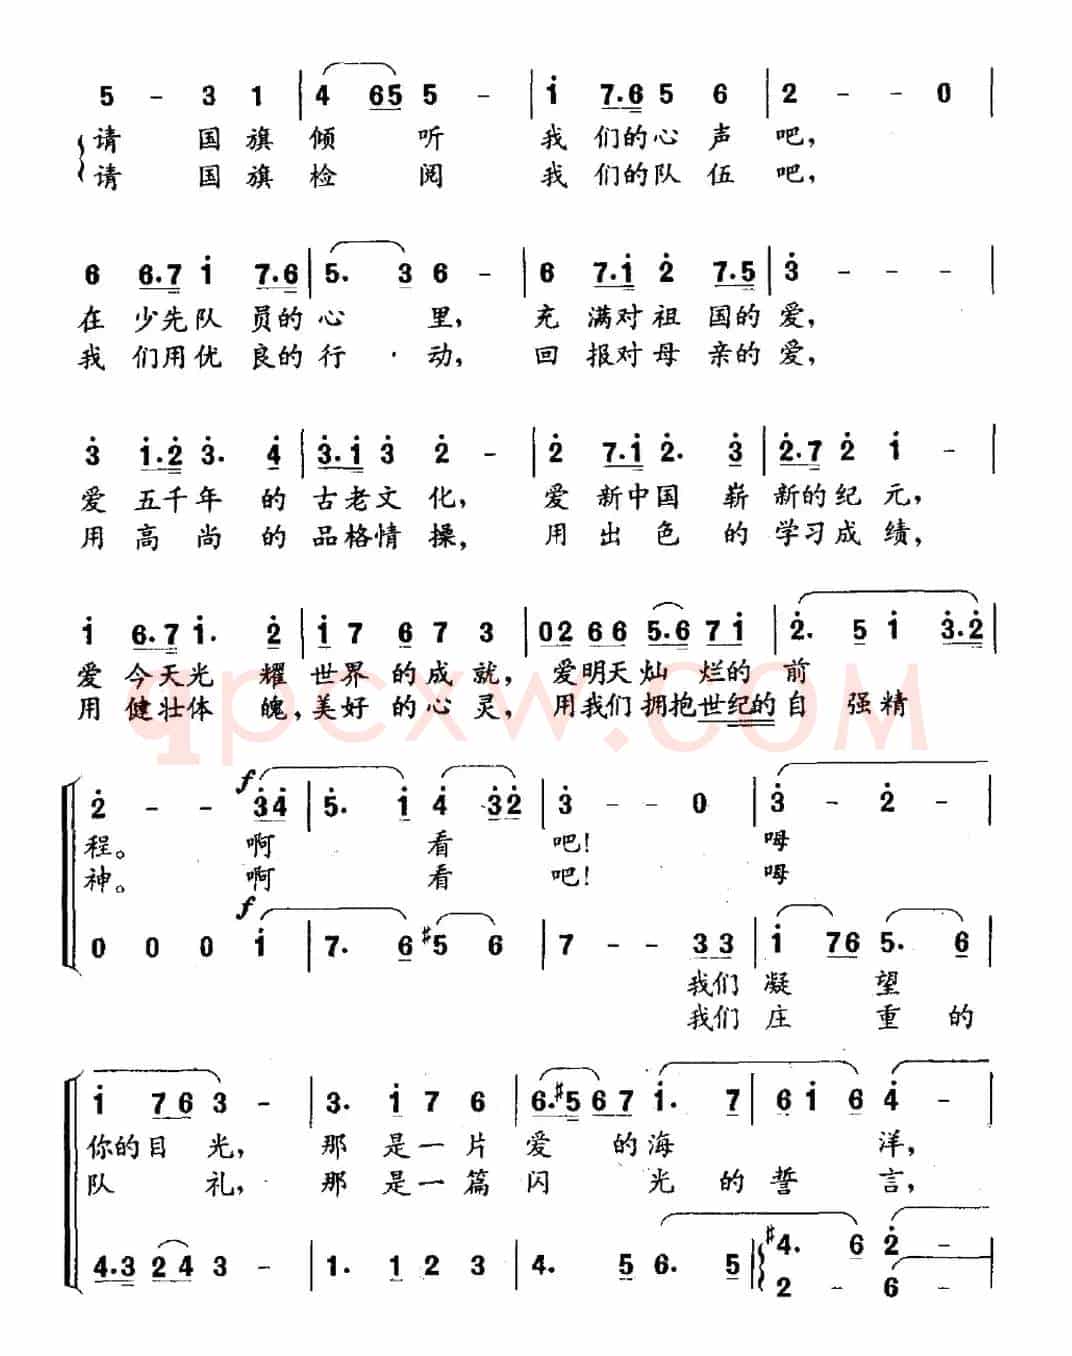 5 - 3 1 | 4 65 5 - | i 7.6 5 6 | 2 - - 0 |
请 国旗 倾 听 我 们的心 声 吧，
请 国旗 检 阅 我 们的队 伍 吧，
6 6.7 i 7.6 | 5. 3 6 - | 6 7.i 2 7.5 | 3 - - - |
在 少先队 员的心 里， 充 满对祖 国的爱，
我 们用优 良的行 · 动， 回 报对母 亲的爱，
3 i.2 3. 4 | 3.i 3 2 - | 2 7.i 2. 3 | 2.7 2 i - |
爱 五千年 的 古老文 化， 爱 新中国 崭 新的纪 元，
用 高 尚 的 品格情 操， 用 出 色 的 学习成 绩，
i 6.7 i. 2 | i 7 6 7 3 | 02 66 5.6 7i | 2. 5 i 3.2 |
爱 今天光 耀 世界 的成 就， 爱明天灿 烂的 前
用 健壮体 魄，美好 的心 灵， 用我们拥抱世纪的自 强精
qpcxw.com
f
2 - - 34 | 5. i 4 32 | 3 - - 0 | 3 - 2 - |
程。 啊 看 吧！ 呣
神。 啊 看 吧！ 呣
f
0 0 0 i | 7. 6 #5 6 | 7 - - 33 | i 76 5. 6 |
我们 凝 望
我们 庄 重 的
i 76 3 - | 3. i 7 6 | 6.#5 67 i. 7 | 6 i 6 4 - |
你的目 光， 那 是一 片 爱 的海 洋，
队 礼， 那 是一 篇 闪 光 的 誓 言，
4.3 24 3 - | 1. 1 2 3 | 4. 5 6. 5 | #4. 6 2 - |
2 - 6 -